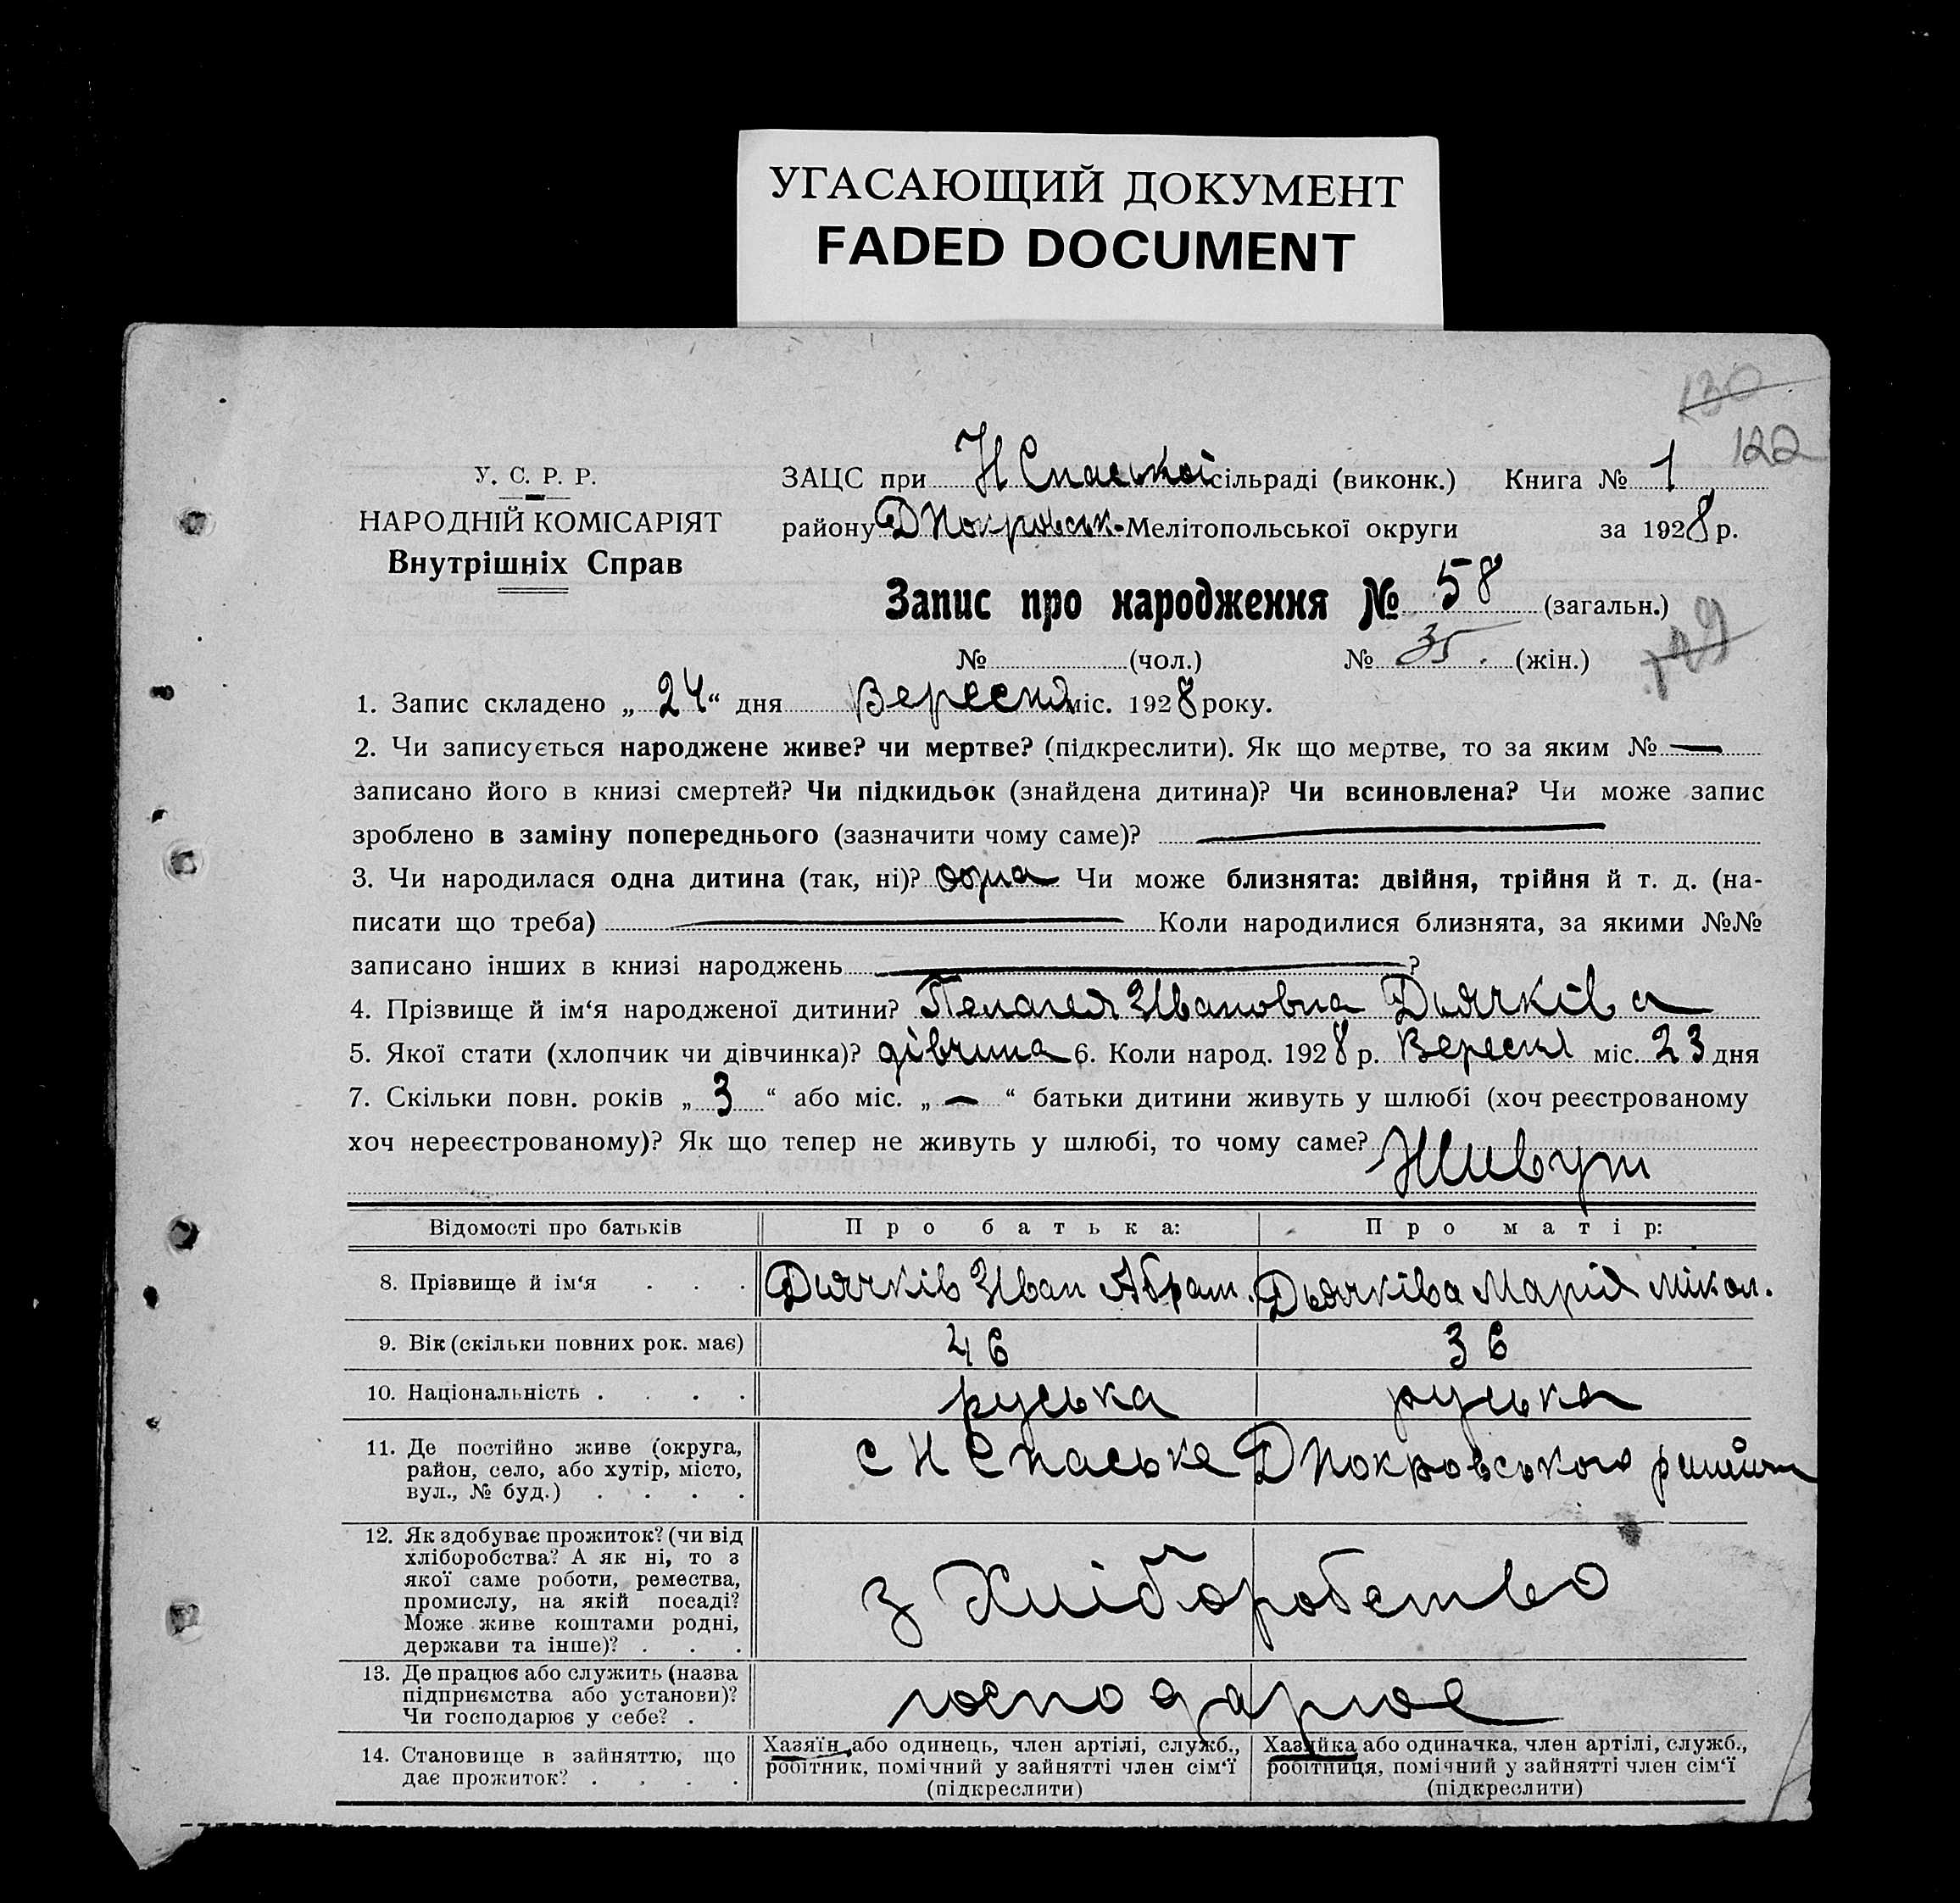 УГАСАЮЩИЙ ДОКУМЕНТ
FADED DOCUMENT
130
122
У. С. Р. Р.
НАРОДНІЙ КОМІСАРІЯТ
Внутрішніх Справ
ЗАЦС при Н Спаської сільраді (виконк.) Книга № 1
району Д Покровськ. Мелітопольської округи за 1928 р.
Запис про народження № 58 (загальн.)
№ (чол.) № 35. (жін.)
1. Запис складено „ 24 “ дня Вересня міс. 1928 року.
2. Чи записується народжене живе? чи мертве? (підкреслити). Як що мертве, то за яким № —
записано його в книзі смертей? Чи підкидьок (знайдена дитина)? Чи всиновлена? Чи може запис
зроблено в заміну попереднього (зазначити чому саме)? —
3. Чи народилася одна дитина (так, ні)? одна Чи може близнята: двійня, трійня й т. д. (на-
писати що треба) — Коли народилися близнята, за якими №№
записано інших в книзі народжень — ?
4. Прізвище й ім‘я народженої дитини? Пелагея Ивановна Дьячківа
5. Якої стати (хлопчик чи дівчинка)? дівчина 6. Коли народ. 1928 р. Вересня міс. 23 дня
7. Скільки повн. років „ 3 “ або міс. „ — “ батьки дитини живуть у шлюбі (хоч реєстрованому
хоч нереєстрованому)? Як що тепер не живуть у шлюбі, то чому саме? Живут
Відомості про батьків Про батька: Про матір:
8. Прізвище й ім‘я . . . Дьячків Иван Абрам. Дьячківа Марія Мікол.
9. Вік (скільки повних рок. має) 46 36
10. Національність . . . . руська руська
11. Де постійно живе (округа,
район, село, або хутір, місто,
вул., № буд.) . . . .
с Н Спаське Д Покровського
12. Як здобуває прожиток? (чи від
хліборобства? А як ні, то з
якої саме роботи, ремества,
промислу, на якій посаді?
Може живе коштами родні,
держави та інше)? . . .
з Хліборобство
13. Де працює або служить (назва
підприємства або установи)?
Чи господарює у себе? .
господарює
14. Становище в зайняттю, що
дає прожиток? . . . .
Хазяїн або одинець, член артілі, служб.,
робітник, помічний у зайнятті член сім‘ї
(підкреслити)
Хазяйка або одиначка, член артілі, служб.,
робітниця, помічний у зайнятті член сім‘ї
(підкреслити)